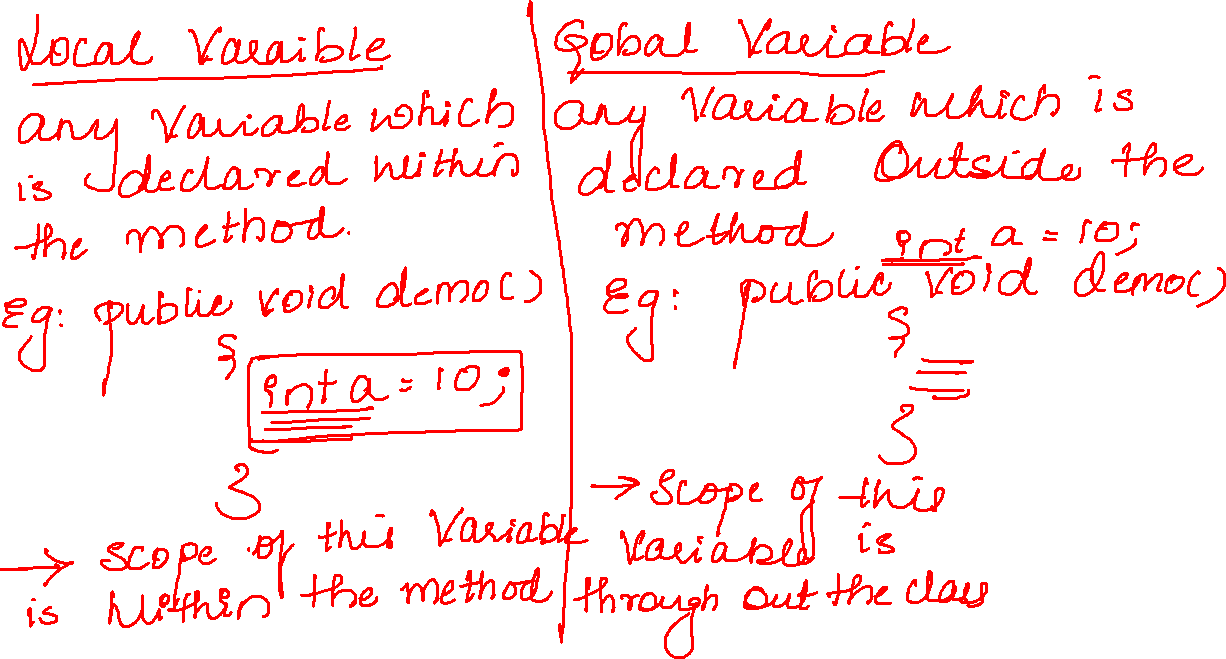 Local Varaible
any Variable which
is declared within
the method.
Eg: public void demo()
{
int a = 10;
}
→ scope of this Variable
is within the method
Gobal Variable
any Variable which is
declared Outside the
method int a = 10;
Eg: public void demo()
{
}
→ Scope of this
Variable is
through out the class